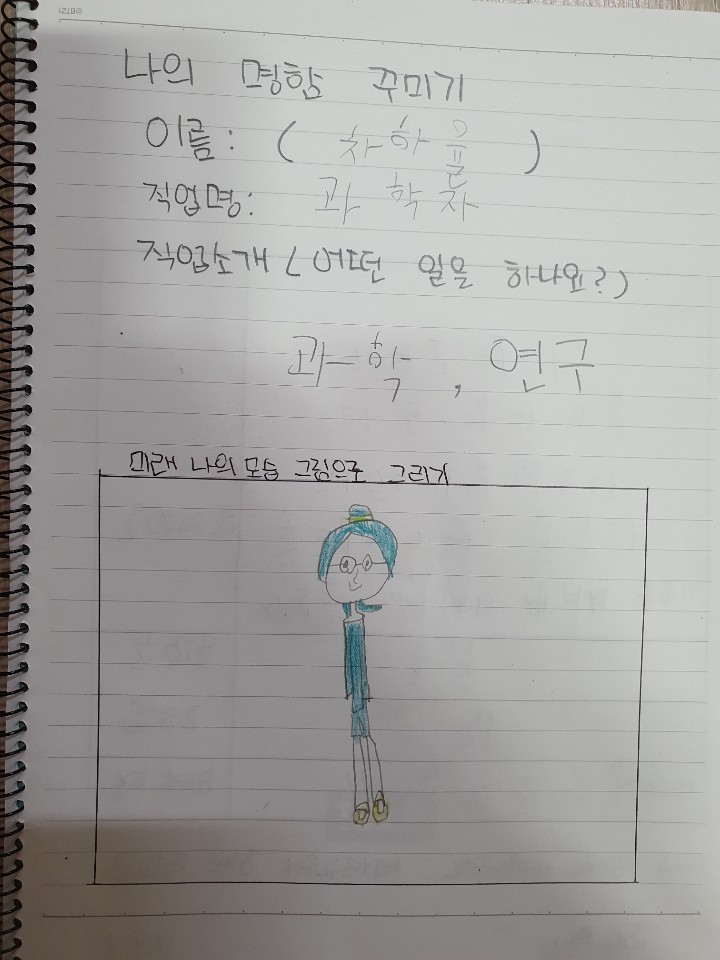 나의 명함 꾸미기
이름: ( 차하율 )
직업명: 과학자
직업소개 (어떤 일을 하나요?)
과학, 연구
미래 나의 모습 그림으로 그리기